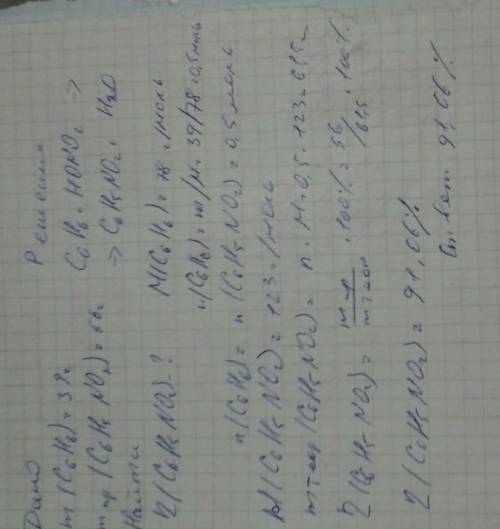 Дано
m(C6H6)=39г
mпр(C6H5NO2)=56г
Найти
η(C6H5NO2)-?
Решение
C6H6+HONO2 →
→ C6H5NO2+H2O
M(C6H6)=78г/моль
n(C6H6)=m/M=39/78=0,5моль
n(C6H6)=n(C6H5NO2)=0,5моль
M(C6H5NO2)=123г/моль
mтеор(C6H5NO2)=n·M=0,5·123=61,5г
η(C6H5NO2)=mпр/mтеор·100%=56/61,5·100%
η(C6H5NO2)=91,06%
Ответ: 91,06%